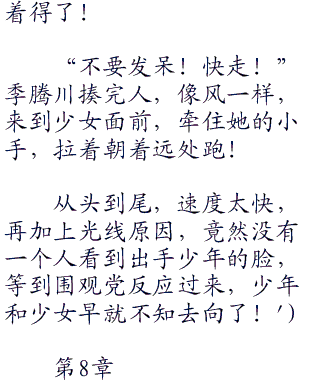 着得了！
“不要发呆！快走！”
季腾川揍完人，像风一样，
来到少女面前，牵住她的小
手，拉着朝着远处跑！
从头到尾，速度太快，
再加上光线原因，竟然没有
一个人看到出手少年的脸，
等到围观党反应过来，少年
和少女早就不知去向了！')
第8章